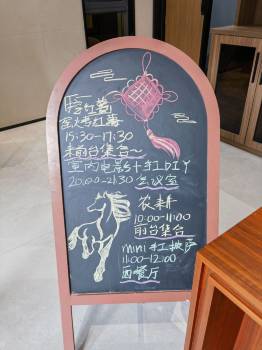 挖红薯
窑烤红薯
15:30-17:30
来前台集合~
室内电影+手工DIY
20:00-21:30 会议室
农耕
10:00-11:00
前台集合
mini手工披萨
11:00-12:00
西餐厅